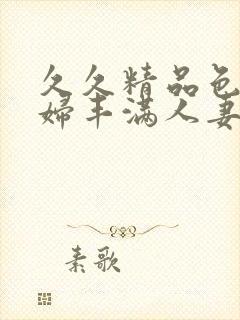 久久精品色
婦丰满人妻
素歌